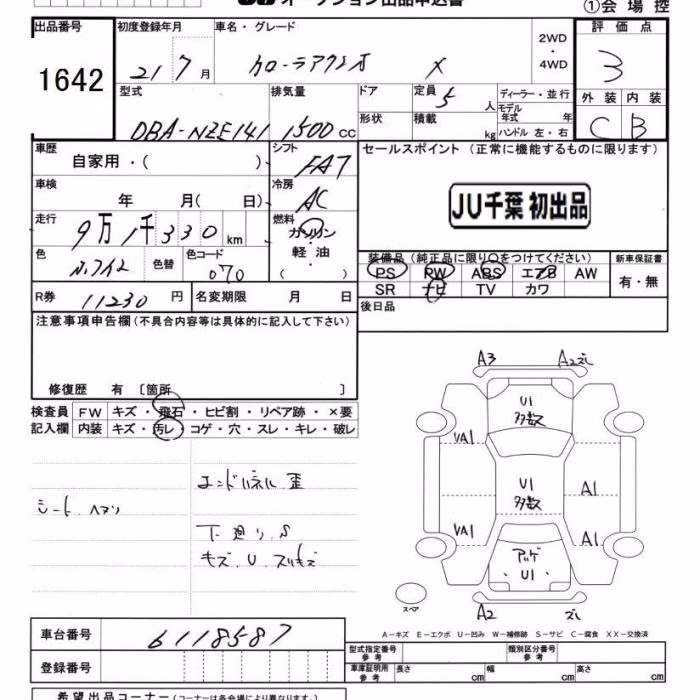 オークション出品申込書
①会場控
出品番号 初度登録年月 車名・グレード 2WD・4WD 評価点
1642 21 7月 カローラアクシオ X 3
型式 排気量 ドア 定員 5人 ディーラー・並行 外装 内装
DBA-NZE141 1500cc 形状 積載 kg モデル年式 年 ハンドル 左・右 C B
車歴 シフト セールスポイント(正常に機能するものに限ります)
自家用・( ) FAT
車検 冷房
年 月( 日) AC
JU千葉 初出品
走行 燃料
9万1千330km ガソリン・軽油・( )
色 色替 色コード 装備品(純正品に限り○をつけてください) 新車保証書
070 PS PW ABS エアB AW 有・無
SR ナビ TV カワ
R券 11230円 名変期限 月 日 後日品
注意事項申告欄(不具合内容等は具体的に記入して下さい)
修復歴 有 〔箇所 〕
検査員 FW キズ・飛石・ヒビ割・リペア跡・×要
記入欄 内装 キズ・汚レ・コゲ・穴・スレ・キレ・破レ
エンドパネル 歪
シート ヘタリ
下廻り S
キズ.U.スリキズ
A3 A2ズレ
U1
多数
VA1
U1
多数
A1
VA1 A1
アッゲ
U1
スペア
A2 ズレ
A−キズ E−エクボ U−凹み W−補修跡 S−サビ C−腐食 XX−交換済
車台番号 6118587
型式指定番号参考 類別区分番号参考
登録番号
車庫証明用参考 長さ cm 幅 cm 高さ cm
希望出品コーナー(コーナーは各会場により異なります。)